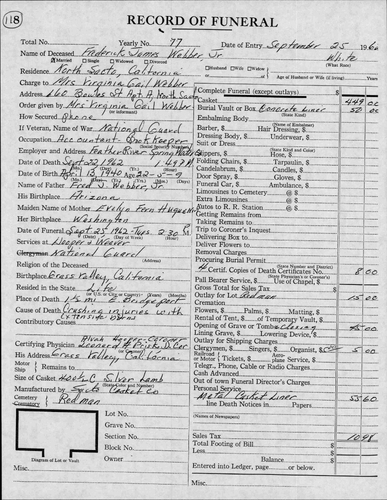 118
RECORD OF FUNERAL
Total No. Yearly No. 77 Date of Entry September 25 196
Name of Deceased Frederick James Webber Jr White
Married Single Widowed Divorced (What Race)
Residence North Sacto, California Husband Wife Widow
or Age of Husband or Wife (if living)
Charge to Mrs Virginia Gail Webber
Address 160 Bowles St Apt A, North Sacto
Order given by Mrs Virginia Gail Webber
(or informant)
How Secured Phone
If Veteran, Name of War National Guard
Occupation Accountant - Book Keeper
Employer Feather River Spring Water
Date of Death Sept 22, 1962
Date of Birth April 13, 1940 Age 22-5-9
Name of Father Fred J Webber, Sr.
His Birthplace Arizona
Maiden Name of Mother Evelyn Fern
Her Birthplace Washington
Date of Funeral Sept 25, 1962 - Tues. 2:30 P
Services at Hooper & Weaver
Clergyman National Guard
Religion of the Deceased
Birthplace Grass Valley, California
Resided in the State Life
Place of Death 1 1/2 mi E. Bridgeport
Cause of Death Crushing injuries with
extensive burns
Contributory Causes
Certifying Physician
His Address Grass Valley, California
Motor Ship Remains to
Size of Casket Silver Lamb
Manufactured by Sacto Casket Co
Cemetery Crematory Redman
Lot No.
Grave No.
Section No.
Block No.
Owner
Diagram of Lot or Vault
Misc.
Complete Funeral (except outlays) $
Casket 449 00
Burial Vault or Box Concrete Liner 50 00
(State Kind)
Embalming Body
(Name of Embalmer)
Barber, $ Hair Dressing, $
Dressing Body, $ Underwear, $
Suit or Dress
(State Kind and Color)
Slippers, $ Hose, $
Folding Chairs, $ Tarpaulin, $
Candelabrum, $ Candles, $
Door Spray, $ Gloves, $
Funeral Car, $ Ambulance, $
Limousines to Cemetery @ $
Extra Limousines @ $
Autos to R. R. Station @ $
Getting Remains from
Taking Remains to
Trip to Coroner's Inquest
Delivering Box to
Deliver Flowers to
Removal Charges
Procuring Burial Permit
(State Number and District)
4 Certif. Copies of Death Certificates No. 8 00
(State Physician's or Coroner's)
Pall Bearer Service, $ Use of Chapel, $
Gross Total for Sales Tax $
Outlay for Lot Redman 15 00
Cremation
Flowers, $ Palms, $ Matting, $
Rental of Tent, $ of Temporary Vault, $
Opening of Grave or Tomb Closing 45 00
Lining Grave, $ Lowering Device, $
Outlay for Shipping Charges
Clergymen, $ Singers, $ Organist, $ 5 00
Railroad or Motor Tickets, $ Aeroplane Service, $
Telegr., Phone, Cable or Radio Charges
Cash Advanced
Out of town Funeral Director's Charges
Personal Service
Metal Casket Liner 53 60
line Death Notices in Papers
(Names of Newspapers)
Sales Tax 10 98
Total Footing of Bill $
Less $
Balance $
Entered into Ledger, page or below.
Misc.